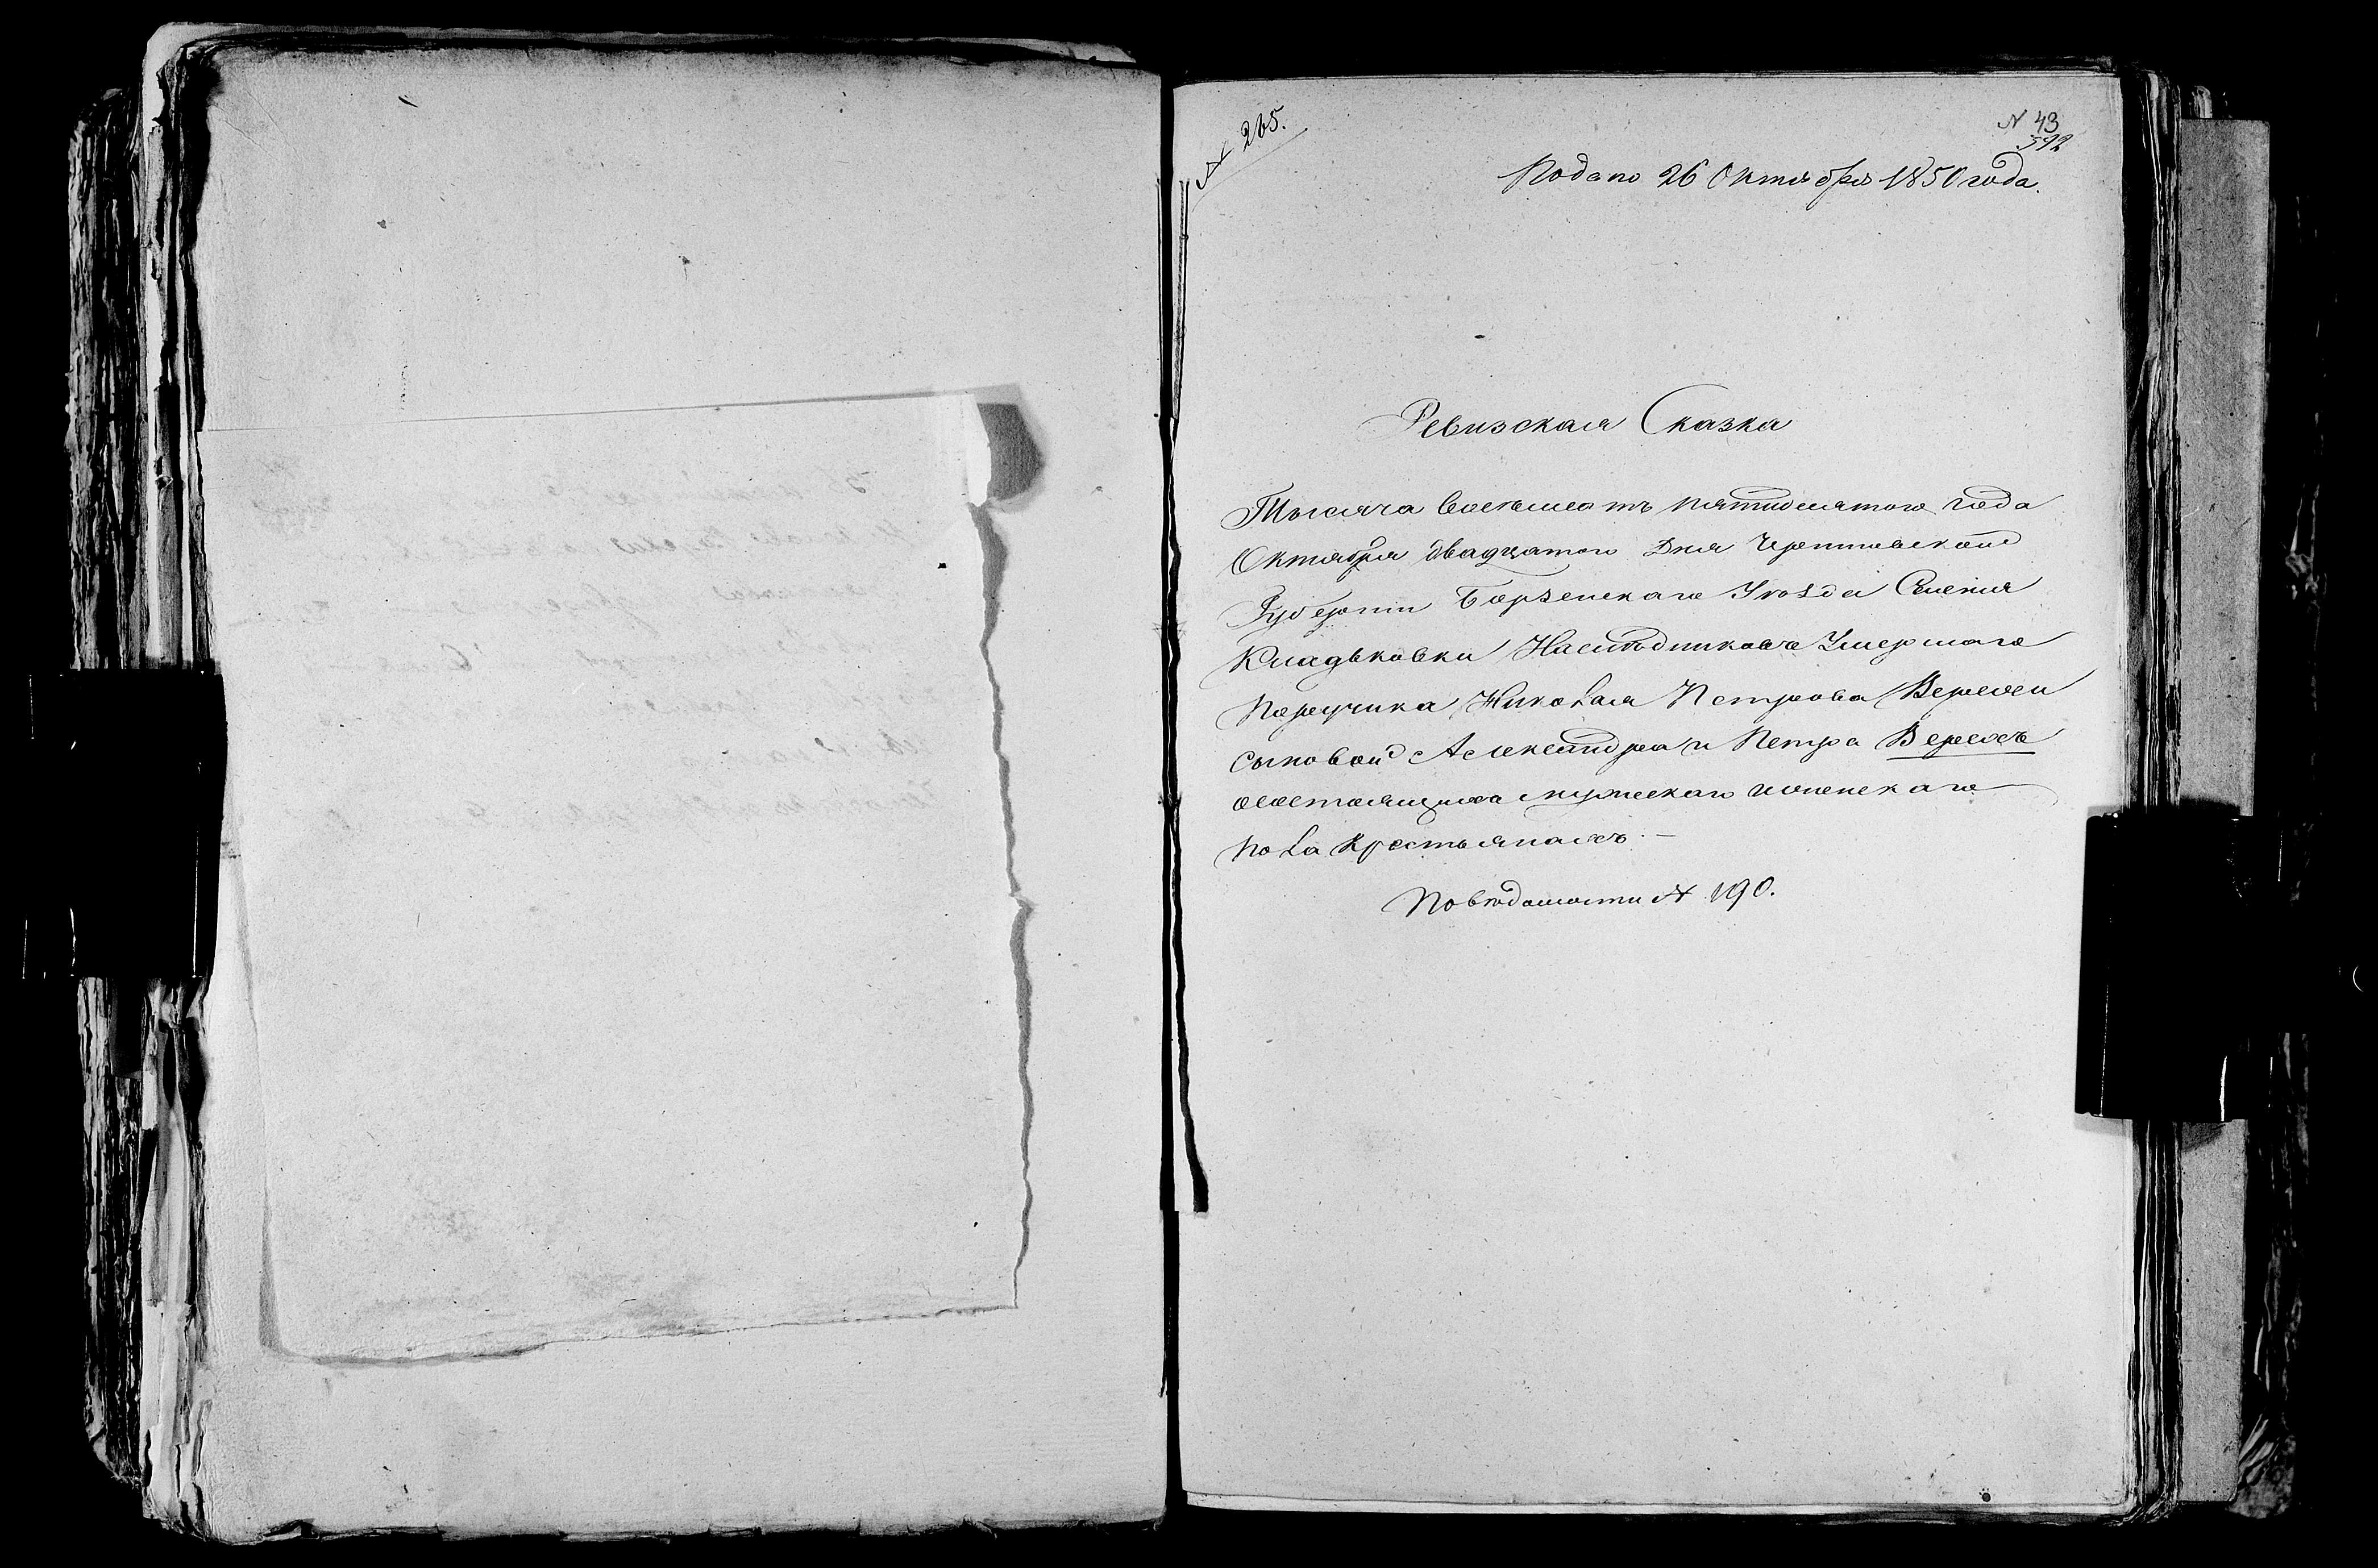 № 265.
№ 43
592
Подано 26 Октября 1850 года.
Ревизская Сказка
Тысяча восемьсотъ пятидесятого года
Октября двадцатого Дня Черниговской
Губерніи Борзенскаго Уѣзда Селенія
Кладьковки Наслѣдниковъ Умершаго
Поручика Николая Петрова
сыновей Александра и Петра
о состоящихъ мужескаго и женскаго
пола Крестьянахъ. —
По вѣдомости № 190.